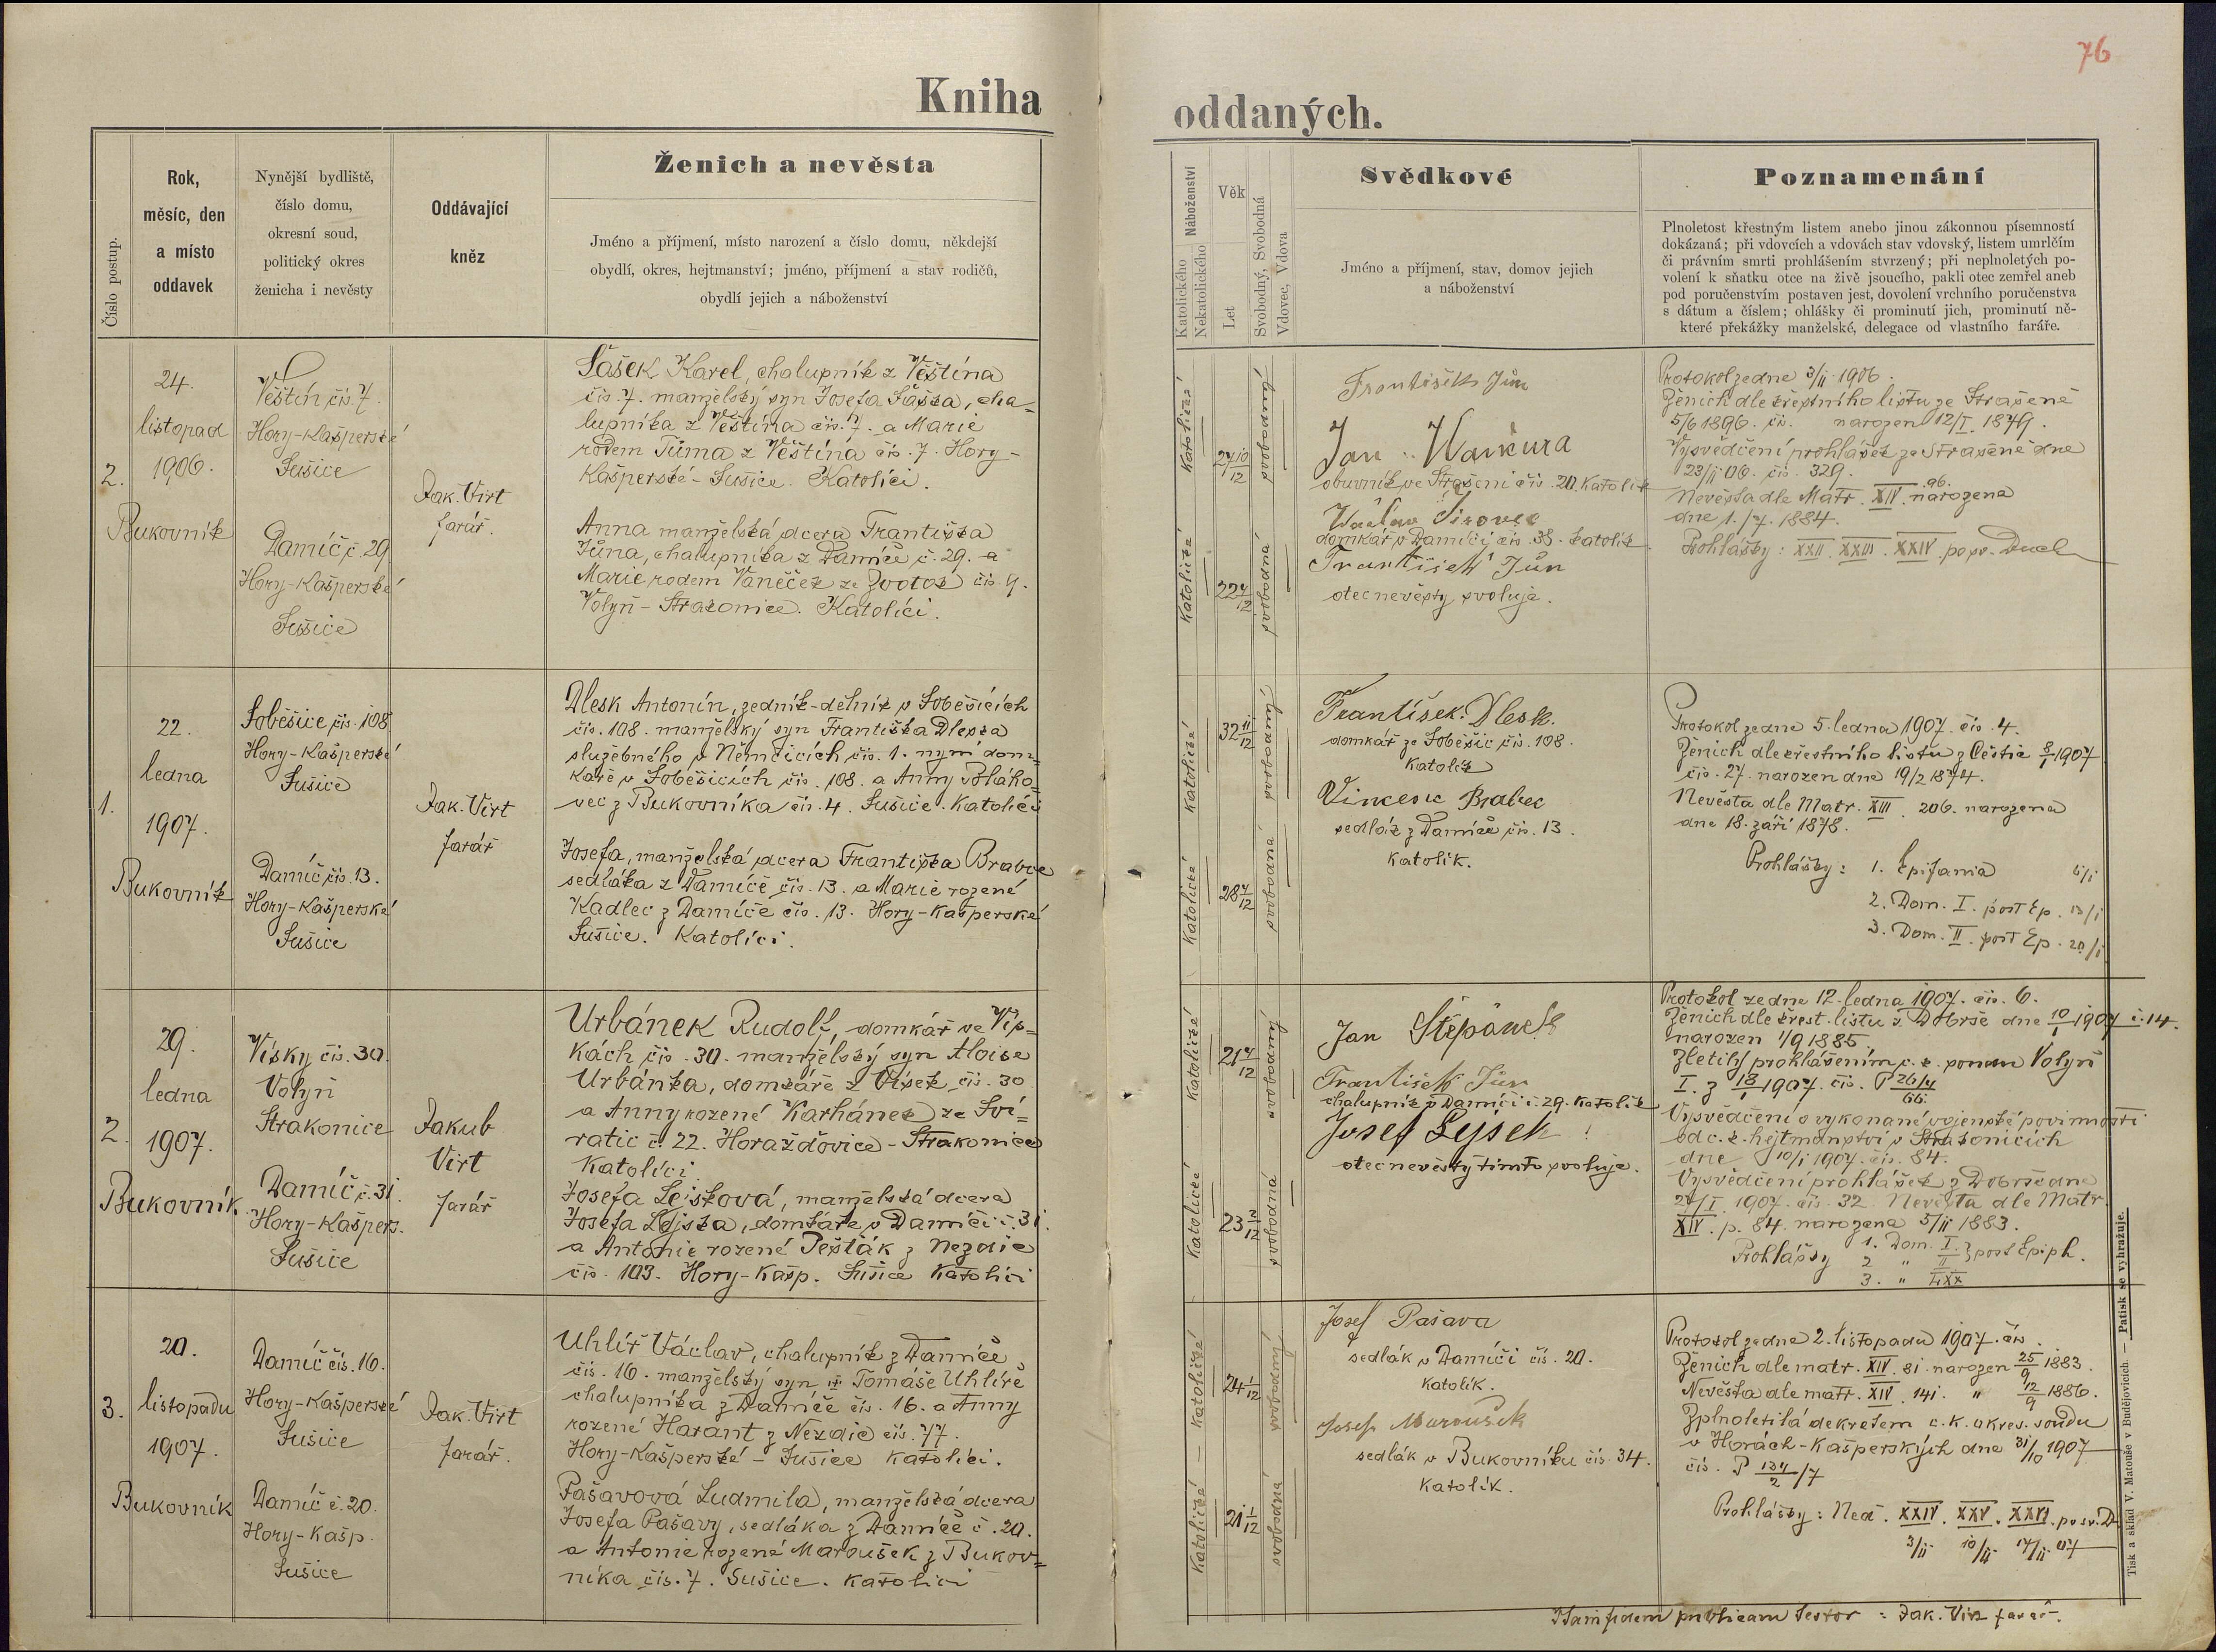 76
Kniha oddaných.
Číslo postup.
Rok,
měsíc, den
a místo
oddavek
Nynější bydliště,
číslo domu,
okresní soud,
politický okres
ženicha i nevěsty
Oddávající
kněz
Ženich a nevěsta
Jméno a příjmení, místo narození a číslo domu, někdejší
obydlí, okres, hejtmanství; jméno, příjmení a stav rodičů,
obydlí jejich a náboženství
Náboženství
Katolického
Nekatolického
Věk
Let
Svobodný, Svobodná
Vdovec, Vdova
Svědkové
Jméno a příjmení, stav, domov jejich
a náboženství
Poznamenání
Plnoletost křestným listem anebo jinou zákonnou písemností
dokázaná; při vdovcích a vdovách stav vdovský, listem umrlčím
či právním smrti prohlášením stvrzený; při neplnoletých po-
volení k sňatku otce na živě jsoucího, pakli otec zemřel aneb
pod poručenstvím postaven jest, dovolení vrchního poručenstva
s dátum a číslem; ohlášky či prominutí jich, prominutí ně-
které překážky manželské, delegace od vlastního faráře.
2.
24.
listopad
1906.
Bukovník
Věštín čís. 7.
Hory-Kašperské
Sušice
Damíč č. 29
Hory-Kašperské
Sušice
Jak. Virt
farář.
Šašek Karel, chalupník z Věštína
čís. 7. manželský syn Josefa Šaška, cha-
lupníka z Věštína čís. 7. a Marie
rodem Tůma z Věštína čís. 7. Hory-
Kašperské-Sušice. Katolíci.
Anna manželská dcera Františka
Jůna, chalupníka z Damíče č. 29. a
Marie rodem Vaněček ze Zvotok čís. 9.
Volyň-Strakonice. Katolíci.
Katolické
27 10/12
svobodný
Katolické
22 4/12
svobodná
František Jůn
Jan Wankura
obuvník ve Strašeni čís. 20. Katolík
Václav Sirovec
domkář v Damíči čís. 38. Katolík
František Jůn
otec nevěsty svoluje.
Protokol ze dne 3/11 1906.
Ženich dle křestního listu ze Strašeně
5/6 1896. čís. narozen 12/I. 1879.
Vysvědčení prohlášek ze Strašeně dne
23/11 06. čís. 329.
Nevěsta dle Matr. XIV. 96. narozena
dne 1./7. 1884.
Prohlášky: XXII. XXIII. XXIV. po sv. Duch
1.
22.
ledna
1907.
Bukovník
Soběšice čís. 108
Hory-Kašperské
Sušice
Damíč čís. 13.
Hory-Kašperské
Sušice
Jak. Virt
farář
Dlesk Antonín, zedník-dělník v Soběšicích
čís. 108. manželský syn Františka Dleska
služebného v Němčicích čís. 1. nyní dom-
káře v Soběšicích čís. 108. a Anny Poláko-
vec z Bukovníka čís. 4. Sušice. Katolíci
Josefa, manželská dcera Františka Brabce
sedláka z Damíče čís. 13. a Marie rozené
Kadlec z Damíče čís. 13. Hory-Kašperské
Sušice. Katolíci.
Katolické
32 11/12
svobodný
Katolické
28 4/12
svobodná
František Dlesk.
domkář ze Soběšic čís. 108.
Katolík
Vincenc Brabec
sedlák z Damíče čís. 13.
Katolík.
Protokol ze dne 5. ledna 1907. čís. 4.
Ženich dle křestního listu z Čestic 8/I 1907
čís. 27. narozen dne 19/2 1874.
Nevěsta dle Matr. XIII. 206. narozena
dne 18. září 1878.
Prohlášky: 1. Epifania 6/1
2. Dom. I. post Ep. 13/1
3. Dom. II. post Ep. 20/1
2.
29.
ledna
1907.
Bukovník
Vísky čís. 30.
Volyň
Strakonice
Damíč č. 31.
Hory-Kašpers.
Sušice
Jakub
Virt
farář
Urbánek Rudolf, domkář ve Vís-
kách čís. 30. manželský syn Aloise
Urbánka, domkáře z Vísek čís. 30
a Anny rozené Karhánek ze Sví-
ratic č. 22. Horažďovice-Strakonice
Katolíci
Josefa Lejsková, manželská dcera
Josefa Lejska, domkáře v Damíči č. 31.
a Antonie rozené Pešták z Nezdic
čís. 103. Hory-Kašp. Sušice Katolíci
Katolické
21 4/12
svobodný
Katolické
23 2/12
svobodná
Jan Štěpánek
František Jůn
chalupník v Damíči č. 29. Katolík
Josef Lejsek
otec nevěsty tímto svoluje.
Protokol ze dne 12. ledna 1907. čís. 6.
Ženich dle křest. listu z Dobrše dne 10/I 1907 č. 14.
narozen 1/9 1885.
Zletilý prohlášením c. k. Volyň
I. z 18/I 1907. čís. P 26/4
66.
Vysvědčení o vykonané vojenské povinnosti
od c. k. hejtmanství v Strakonicích
dne 10/1 1907. čís. 84.
Vysvědčení prohlášek z Dobrše dne
27/I. 1907. čís. 32. Nevěsta dle Matr.
XIV. p. 84. narozena 5/11 1883.
Prohlášky 1. Dom. I. } post Epiph.
2 " II.
3. " LXX
3.
20.
listopadu
1907.
Bukovník
Damíč čís. 16.
Hory-Kašperské
Sušice
Damíč č. 20.
Hory-Kašp.
Sušice
Jak. Virt
farář.
Uhlíř Václav, chalupník z Damíče
čís. 16. manželský syn Tomáše Uhlíře
chalupníka z Damíče čís. 16. a Anny
rozené Harant z Nezdic čís. 77.
Hory-Kašperské-Sušice Katolíci.
Pašavová Ludmila, manželská dcera
Josefa Pašavy, sedláka z Damíče č. 20.
a Antonie rozené Maroušek z Bukov-
níka čís. 7. Sušice. Katolíci
Katolické
24 1/12
svobodný
Katolické
21 1/12
svobodná
Josef Pašava
sedlák v Damíči čís. 20.
Katolík.
Josef Maroušek
sedlák v Bukovníku čís. 34.
Katolík.
Protokol ze dne 2. listopadu 1907. čís.
Ženich dle matr. XIV. 81. narozen 25/9 1883.
Nevěsta dle matr. XIV. 141. " 12/9 1886.
Zplnoletilá dekretem c. k. okres. soudu
v Horách-Kašperských dne 31/10 1907
čís. P 134/2 /7
Prohlášky: Ned. XXIV. XXV. XXVI. po sv. D.
3/11 10/11 17/11 07
Hanc fidem publicam testor: Jak. Virt farář.
Tisk a sklad V. Matouše v Budějovicích. — Patisk se vyhražuje.